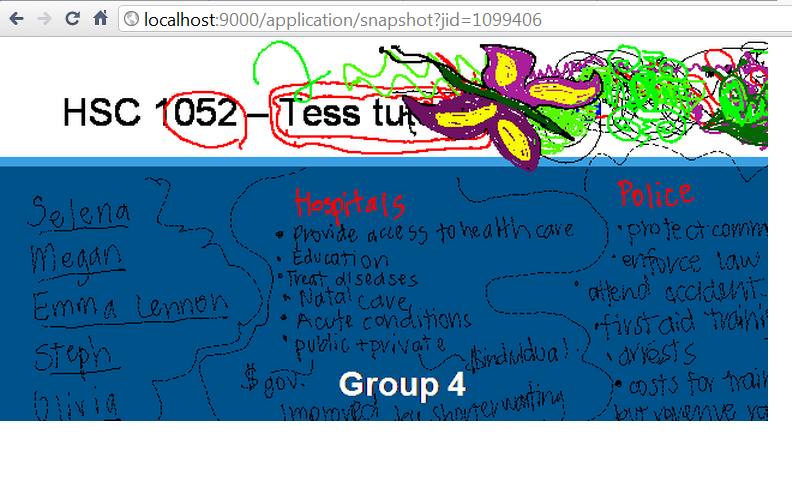 localhost:9000/application/snapshot?jid=1099406
HSC 1052 – Tess tut
Selena
Megan
Emma Lennon
Steph
Olivia
Hospitals
• Provide access to health care
• Education
• Treat diseases
• Natal care
• Acute conditions
• public + private
$gov.
$individual
Improved
shorter waiting
Group 4
Police
• protect comm
• enforce law
• attend accident
• first aid trainin
• arrests
• costs for train
but revenue